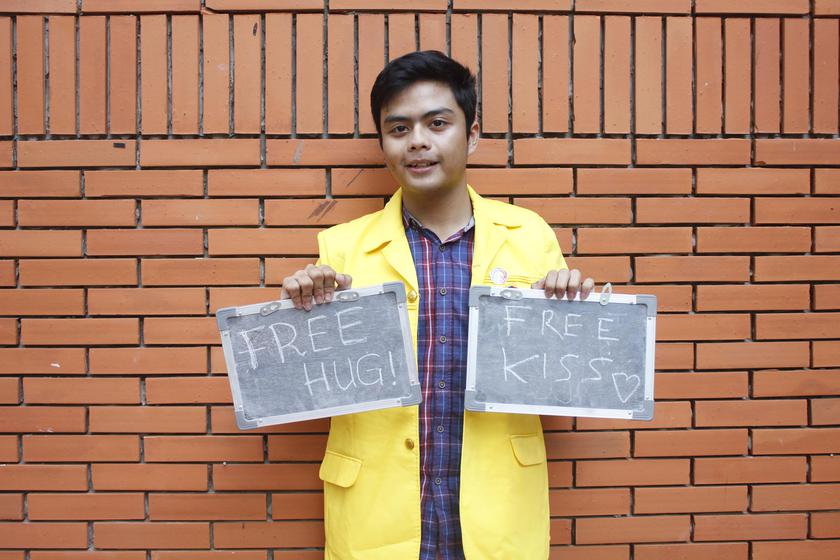 FREE
HUG!
FREE
KISS♡